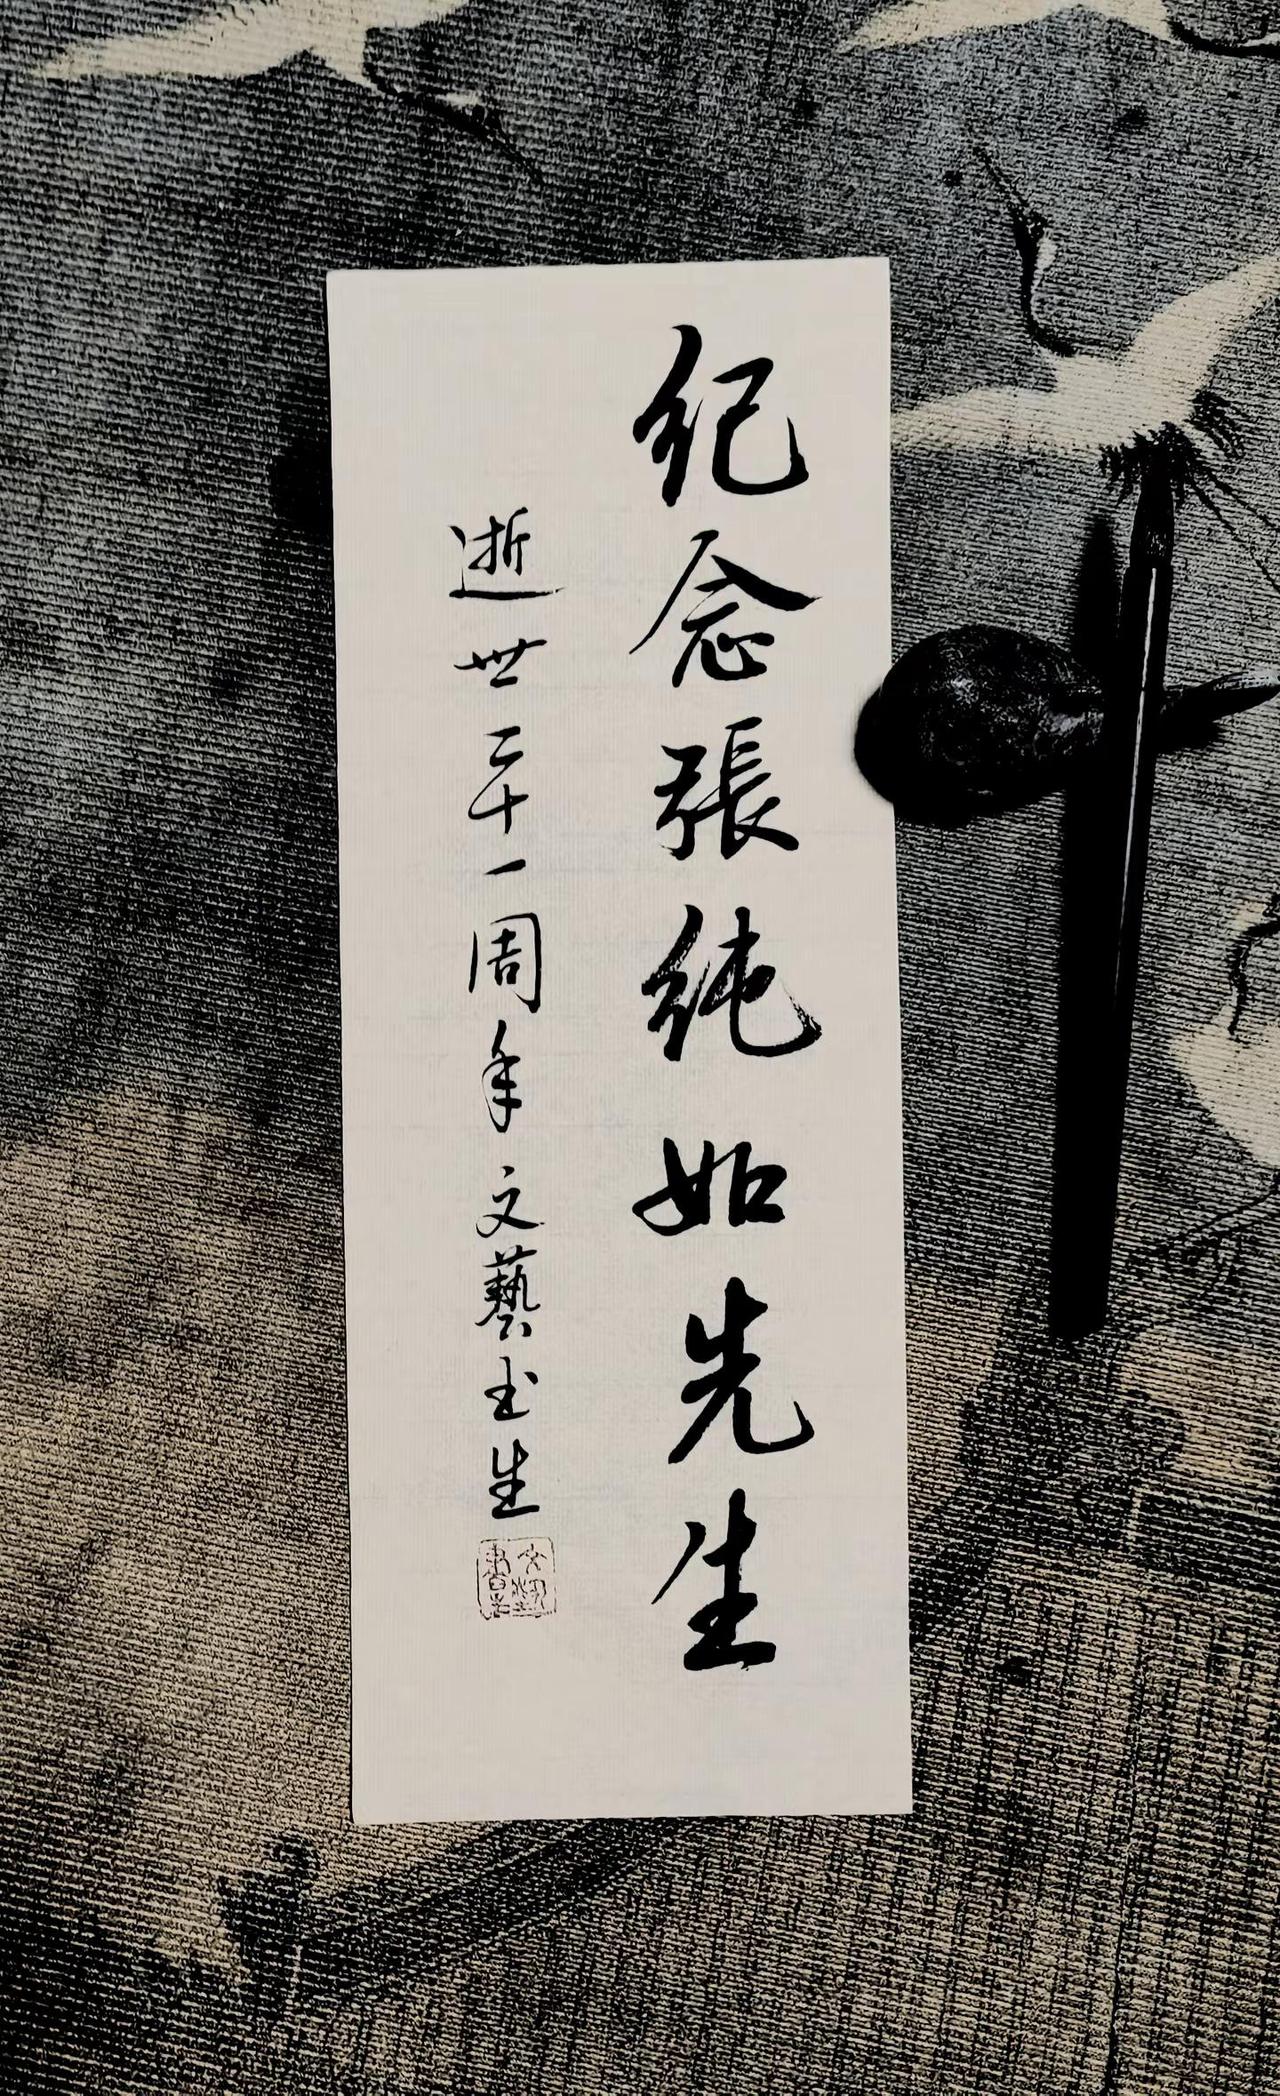 纪念張纯如先生
逝世二十一周年 文藝书生